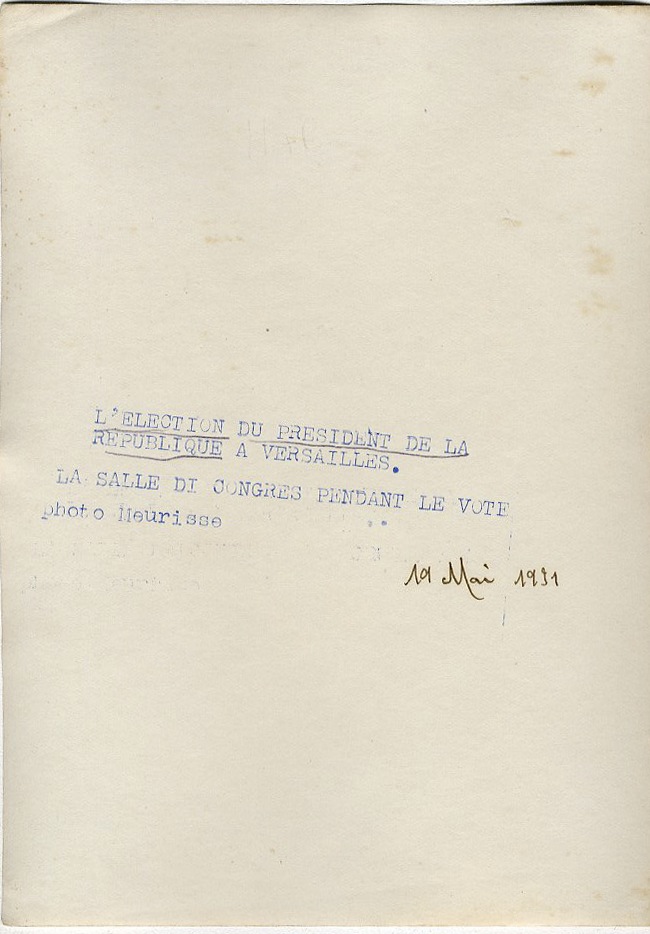 L'ELECTION DU PRESIDENT DE LA
REPUBLIQUE A VERSAILLES.
LA SALLE DI CONGRES PENDANT LE VOTE
photo Meurisse
19 Mai 1931